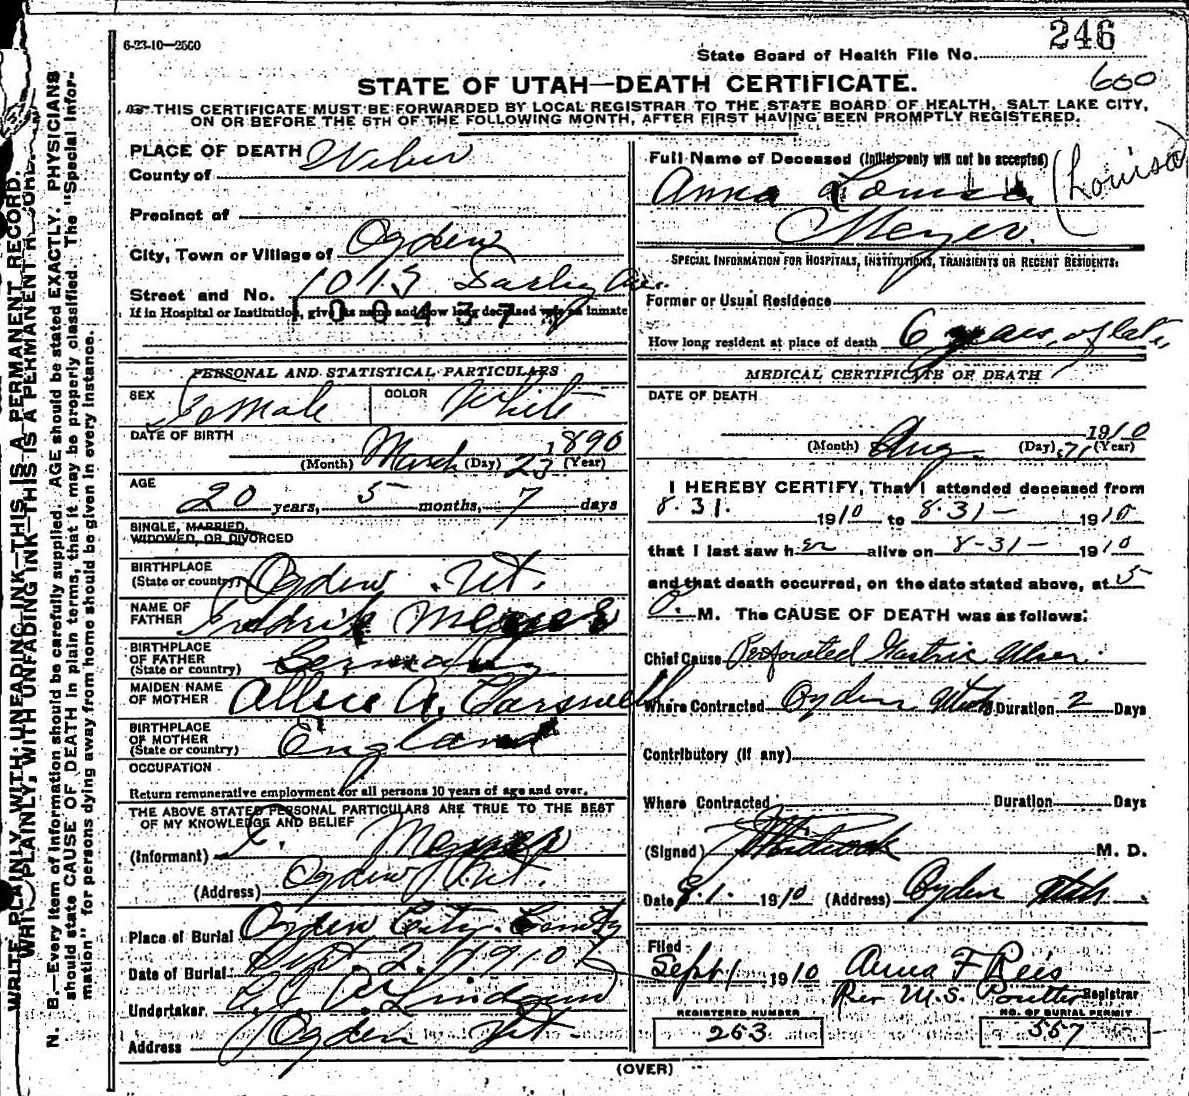 6-23-10-2500
246
State Board of Health File No.
STATE OF UTAH—DEATH CERTIFICATE.
600
THIS CERTIFICATE MUST BE FORWARDED BY LOCAL REGISTRAR TO THE STATE BOARD OF HEALTH, SALT LAKE CITY,
ON OR BEFORE THE 5TH OF THE FOLLOWING MONTH, AFTER FIRST HAVING BEEN PROMPTLY REGISTERED.
WRITE PLAINLY WITH UNFADING INK—THIS IS A PERMANENT RECORD.
WRITE PLAINLY, WITH UNFADING INK—THIS IS A PERMANENT RECORD.
N. B.—Every item of information should be carefully supplied. AGE should be stated EXACTLY. PHYSICIANS
should state CAUSE OF DEATH in plain terms, that it may be properly classified. The "Special Infor-
mation" for persons dying away from home should be given in every instance.
PLACE OF DEATH
County of Weber
Precinct of
City, Town or Village of Ogden
Street and No. 1013 Darling Ave.
If in Hospital or Institution, give its name and how long deceased was an inmate
PERSONAL AND STATISTICAL PARTICULARS
SEX Female COLOR White
DATE OF BIRTH
(Month) March (Day) 23 (Year) 1890
AGE
20 years, 5 months, 7 days
SINGLE, MARRIED,
WIDOWED, OR DIVORCED
BIRTHPLACE
(State or country) Ogden Ut.
NAME OF
FATHER Fredrik Meyer
BIRTHPLACE
OF FATHER
(State or country) Germany
MAIDEN NAME
OF MOTHER Allice A. Carswell
BIRTHPLACE
OF MOTHER
(State or country) England
OCCUPATION
Return remunerative employment for all persons 10 years of age and over.
THE ABOVE STATED PERSONAL PARTICULARS ARE TRUE TO THE BEST
OF MY KNOWLEDGE AND BELIEF
(Informant) Meyer
(Address) Ogden Ut.
Place of Burial Ogden City
Date of Burial Sept. 2. 1910
Undertaker Lindquist
Address Ogden Ut.
Full Name of Deceased (Initials only will not be accepted)
Anna Louisa (Louisa)
Meyer.
SPECIAL INFORMATION FOR HOSPITALS, INSTITUTIONS, TRANSIENTS OR RECENT RESIDENTS:
Former or Usual Residence
How long resident at place of death 6 years, of late
MEDICAL CERTIFICATE OF DEATH
DATE OF DEATH
(Month) Aug. (Day) 31 (Year) 1910
I HEREBY CERTIFY, That I attended deceased from
8.31. 1910 to 8.31- 1910
that I last saw her alive on 8-31- 1910
and that death occurred, on the date stated above, at 5
P. M. The CAUSE OF DEATH was as follows:
Chief Cause Perforated Gastric Ulcer.
Where Contracted Ogden Utah Duration 2 Days
Contributory (if any)
Where Contracted Duration Days
(Signed) M. D.
Date 9.1. 1910 (Address) Ogden Utah.
Filed
Sept 1 1910 Anna F Reis
Per M.S. Poulter Registrar
REGISTERED NUMBER
263
NO. OF BURIAL PERMIT
557
(OVER)